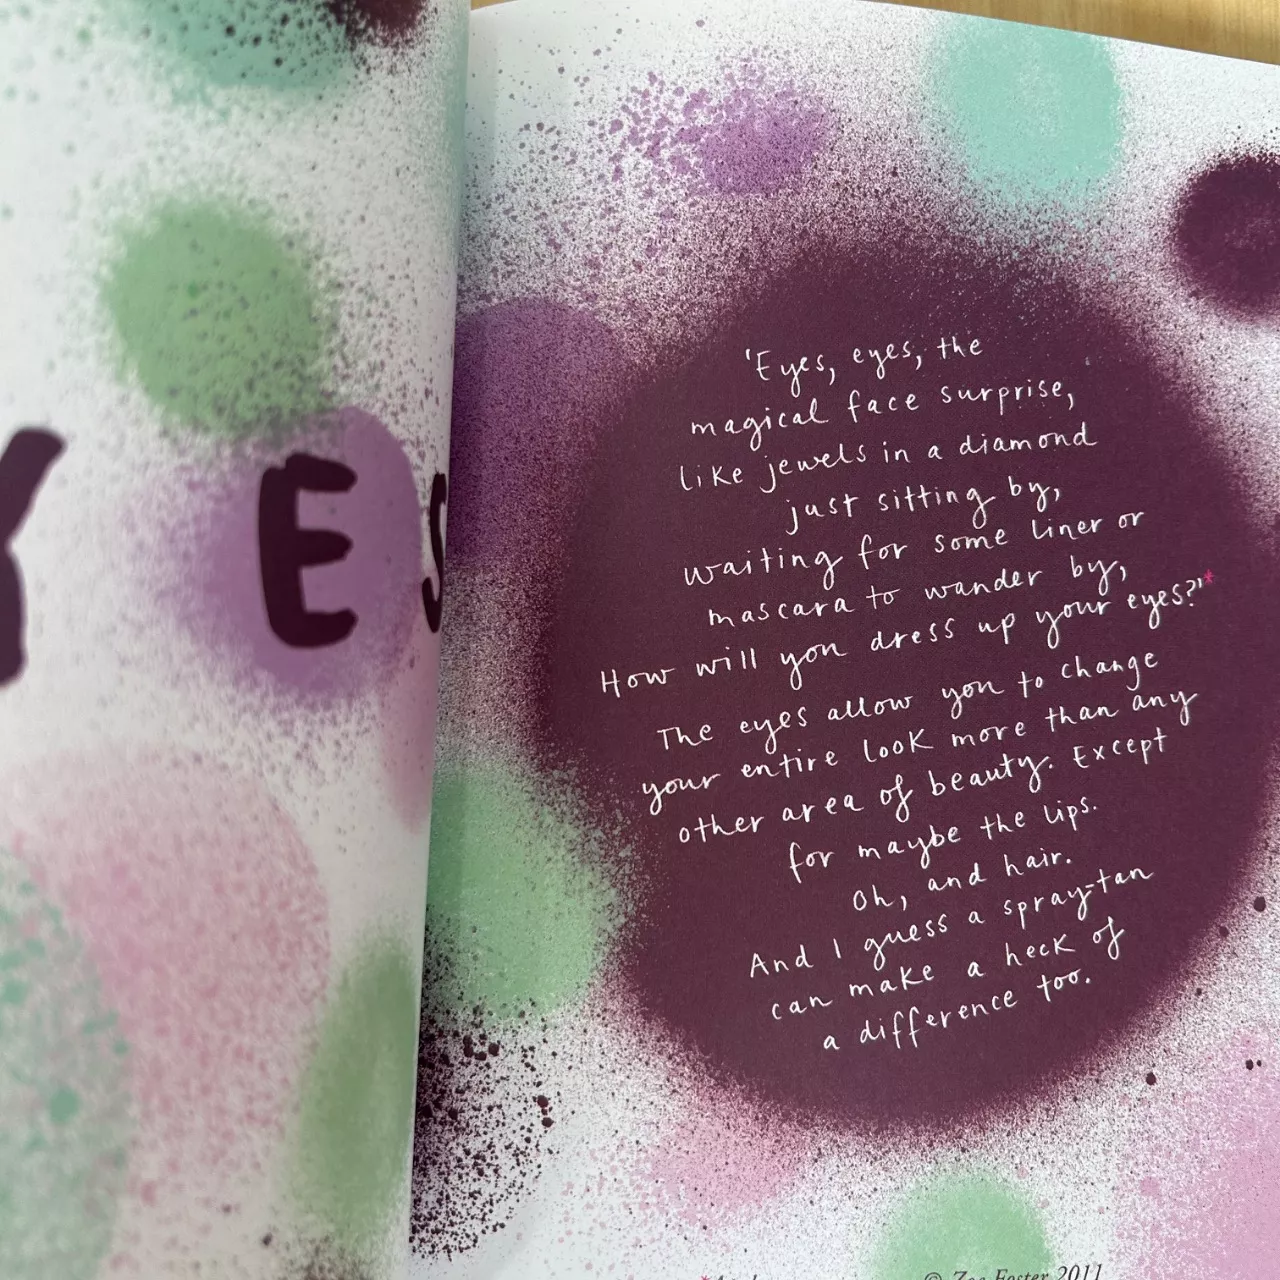 Y E S
'Eyes, eyes, the
magical face surprise,
like jewels in a diamond
just sitting by,
waiting for some liner or
mascara to wander by,
How will you dress up your eyes?'*
The eyes allow you to change
your entire look more than any
other area of beauty. Except
for maybe the lips.
Oh, and hair.
And I guess a spray-tan
can make a heck of
a difference too.
© Zoe Foster 2011